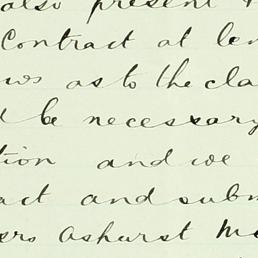 also present
Contract at len
ws as to the cla
d be necessary
tion and we
act and subm
ers Ashurst Mo